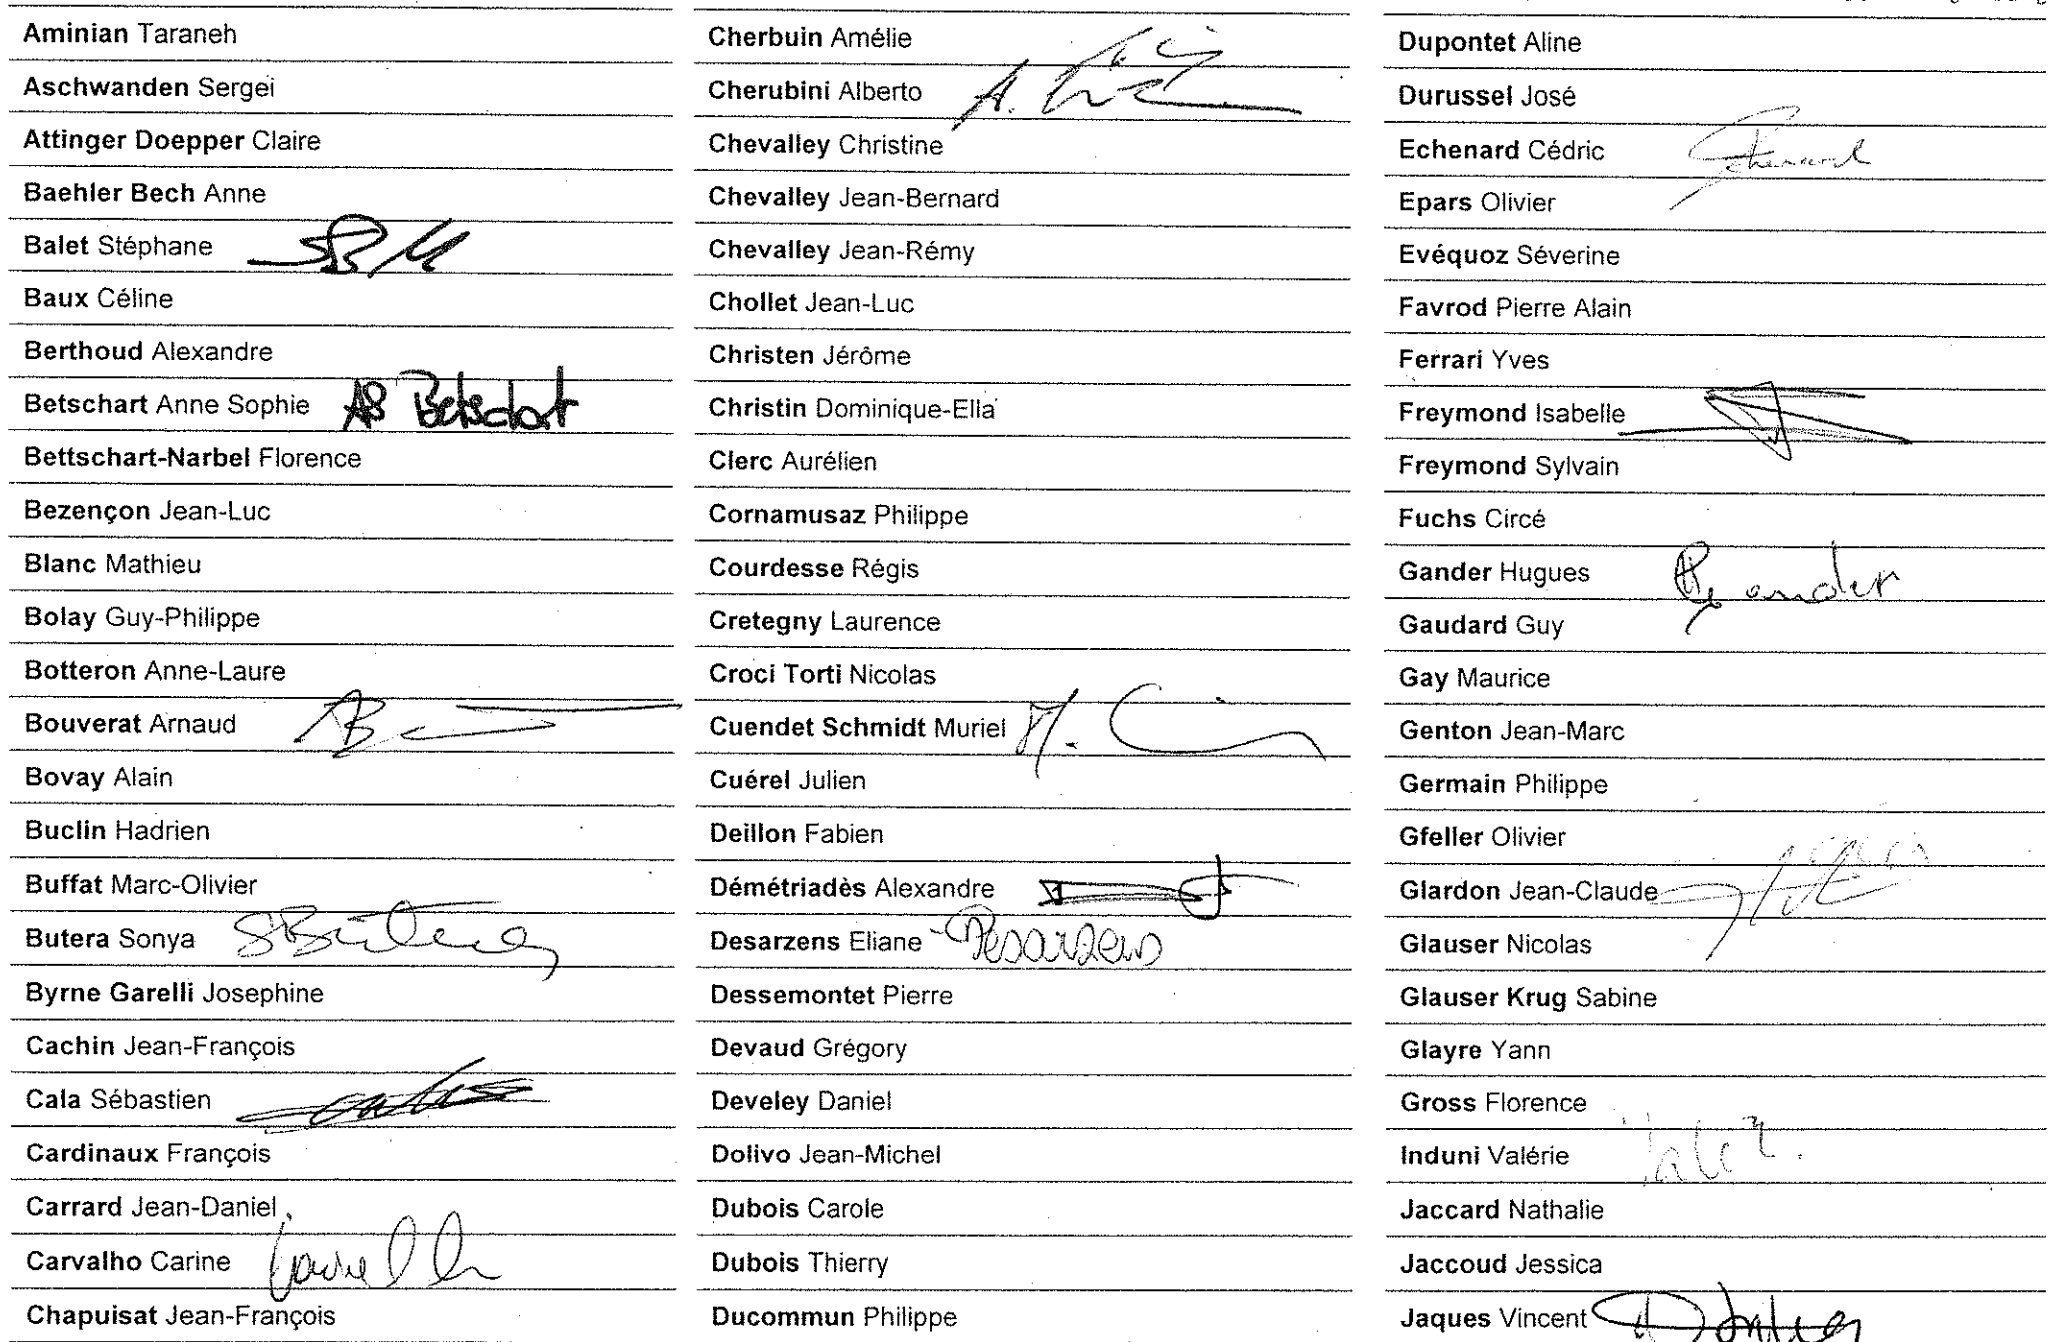 Aminian Taraneh
Aschwanden Sergei
Attinger Doepper Claire
Baehler Bech Anne
Balet Stéphane
Baux Céline
Berthoud Alexandre
Betschart Anne Sophie AS Betschart
Bettschart-Narbel Florence
Bezençon Jean-Luc
Blanc Mathieu
Bolay Guy-Philippe
Botteron Anne-Laure
Bouverat Arnaud
Bovay Alain
Buclin Hadrien
Buffat Marc-Olivier
Butera Sonya SButera
Byrne Garelli Josephine
Cachin Jean-François
Cala Sébastien
Cardinaux François
Carrard Jean-Daniel
Carvalho Carine
Chapuisat Jean-François
Cherbuin Amélie
Cherubini Alberto
Chevalley Christine
Chevalley Jean-Bernard
Chevalley Jean-Rémy
Chollet Jean-Luc
Christen Jérôme
Christin Dominique-Ella
Clerc Aurélien
Cornamusaz Philippe
Courdesse Régis
Cretegny Laurence
Croci Torti Nicolas
Cuendet Schmidt Muriel
Cuérel Julien
Deillon Fabien
Démétriadès Alexandre
Desarzens Eliane Desarzens
Dessemontet Pierre
Devaud Grégory
Develey Daniel
Dolivo Jean-Michel
Dubois Carole
Dubois Thierry
Ducommun Philippe
Dupontet Aline
Durussel José
Echenard Cédric Echenard
Epars Olivier
Evéquoz Séverine
Favrod Pierre Alain
Ferrari Yves
Freymond Isabelle
Freymond Sylvain
Fuchs Circé
Gander Hugues Gander
Gaudard Guy
Gay Maurice
Genton Jean-Marc
Germain Philippe
Gfeller Olivier
Glardon Jean-Claude
Glauser Nicolas
Glauser Krug Sabine
Glayre Yann
Gross Florence
Induni Valérie
Jaccard Nathalie
Jaccoud Jessica
Jaques Vincent